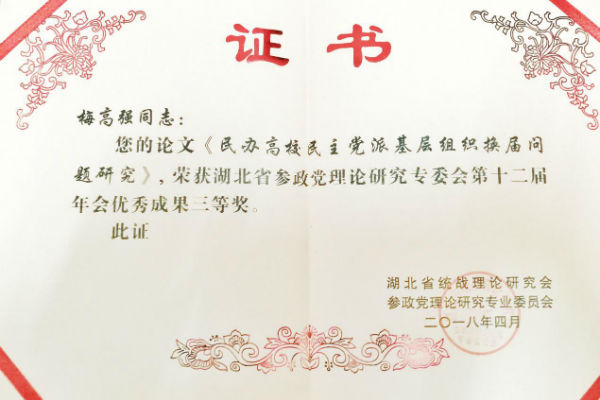 证书
梅高强同志：
您的论文《民办高校民主党派基层组织换届问
题研究》，荣获湖北省参政党理论研究专委会第十二届
年会优秀成果三等奖。
此证
湖北省统战理论研究会
参政党理论研究专业委员会
二〇一八年四月